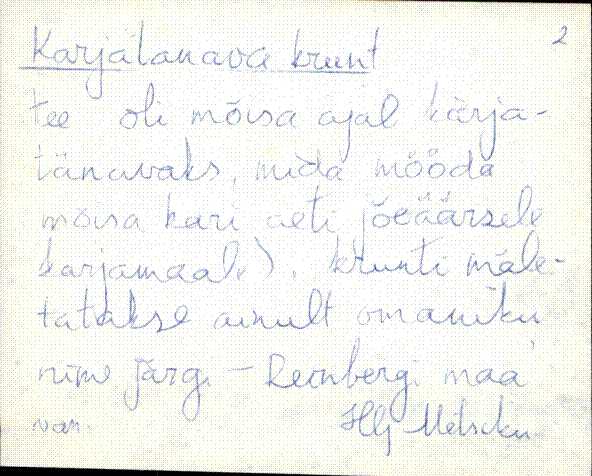 2
Karjatänava krunt
tee oli mõisa ajal karja-
tänavaks, mida mööda
mõisa kari aeti jõeäärsele
karjamaale). Krunti mäle-
tatakse ainult omaniku
nime järgi - Reinbergi maa
van.